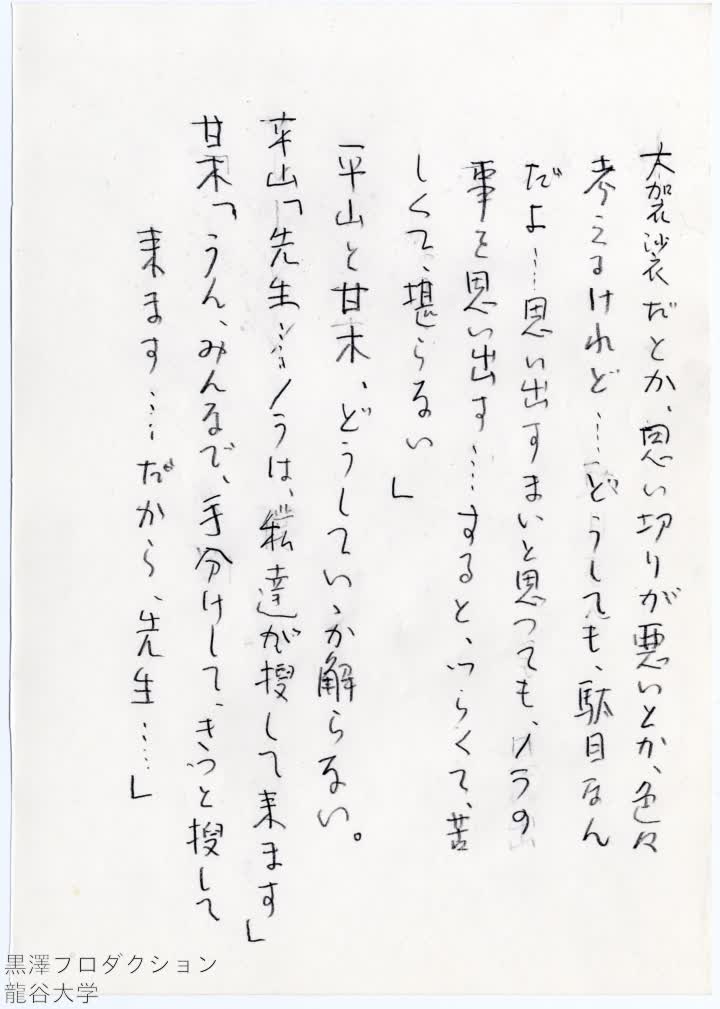 大袈裟だとか、思い切りが悪いとか、色々
考えるけれど……どうしても、駄目なん
だよ……思い出すまいと思っても、ノラの
事を思い出す……すると、つらくて、苦
しくて、堪らない」
平山と甘木、どうしていゝか解らない。
平山「先生……ノラは、私達が捜して来ます」
甘木「うん、みんなで、手分けして、きっと捜して
来ます……だから、先生……」
黒澤プロダクション
龍谷大学